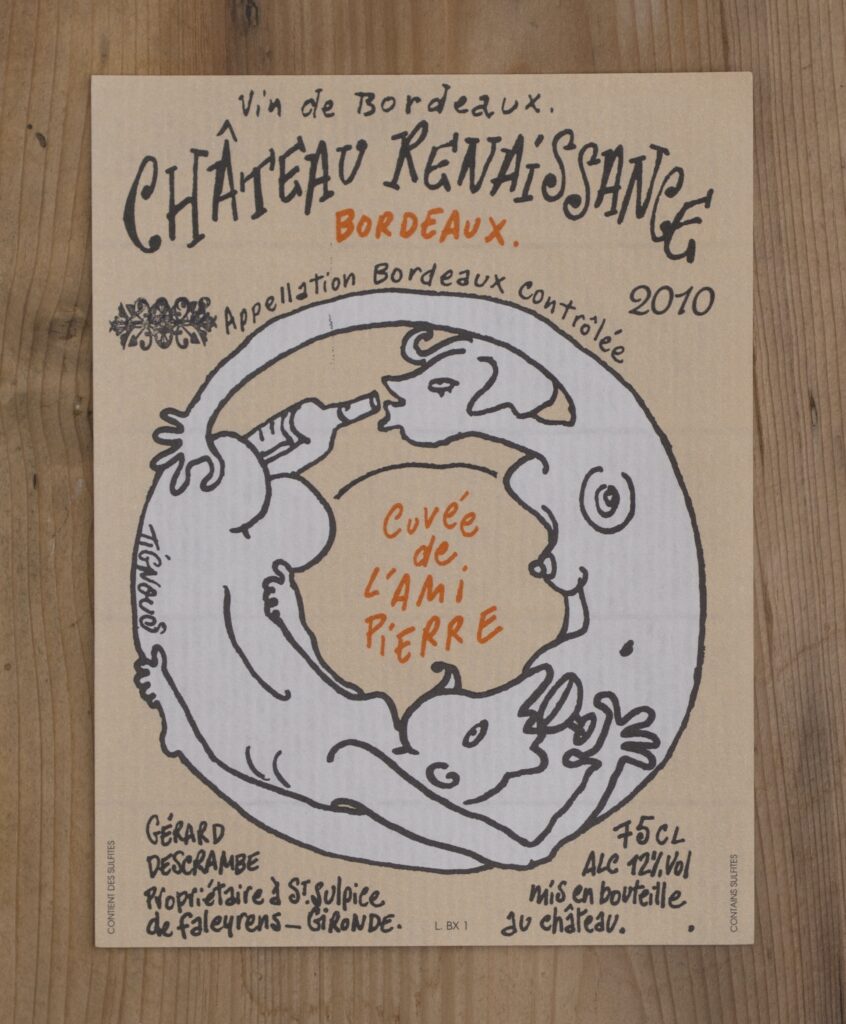 Vin de Bordeaux.
CHÂTEAU RENAiSSANCE
BORDEAUX.
Appellation Bordeaux contrôlée
2010
Cuvée
de
L'AMI
PiERRE
TiGNOUS
GÉRARD
DESCRAMBE
Propriétaire à ST. Sulpice
de faleyrens _ GiRONDE.
75 CL
ALC 12% Vol
mis en bouteille
au château.
L. BX 1
CONTIENT DES SULFITES
CONTAINS SULFITES